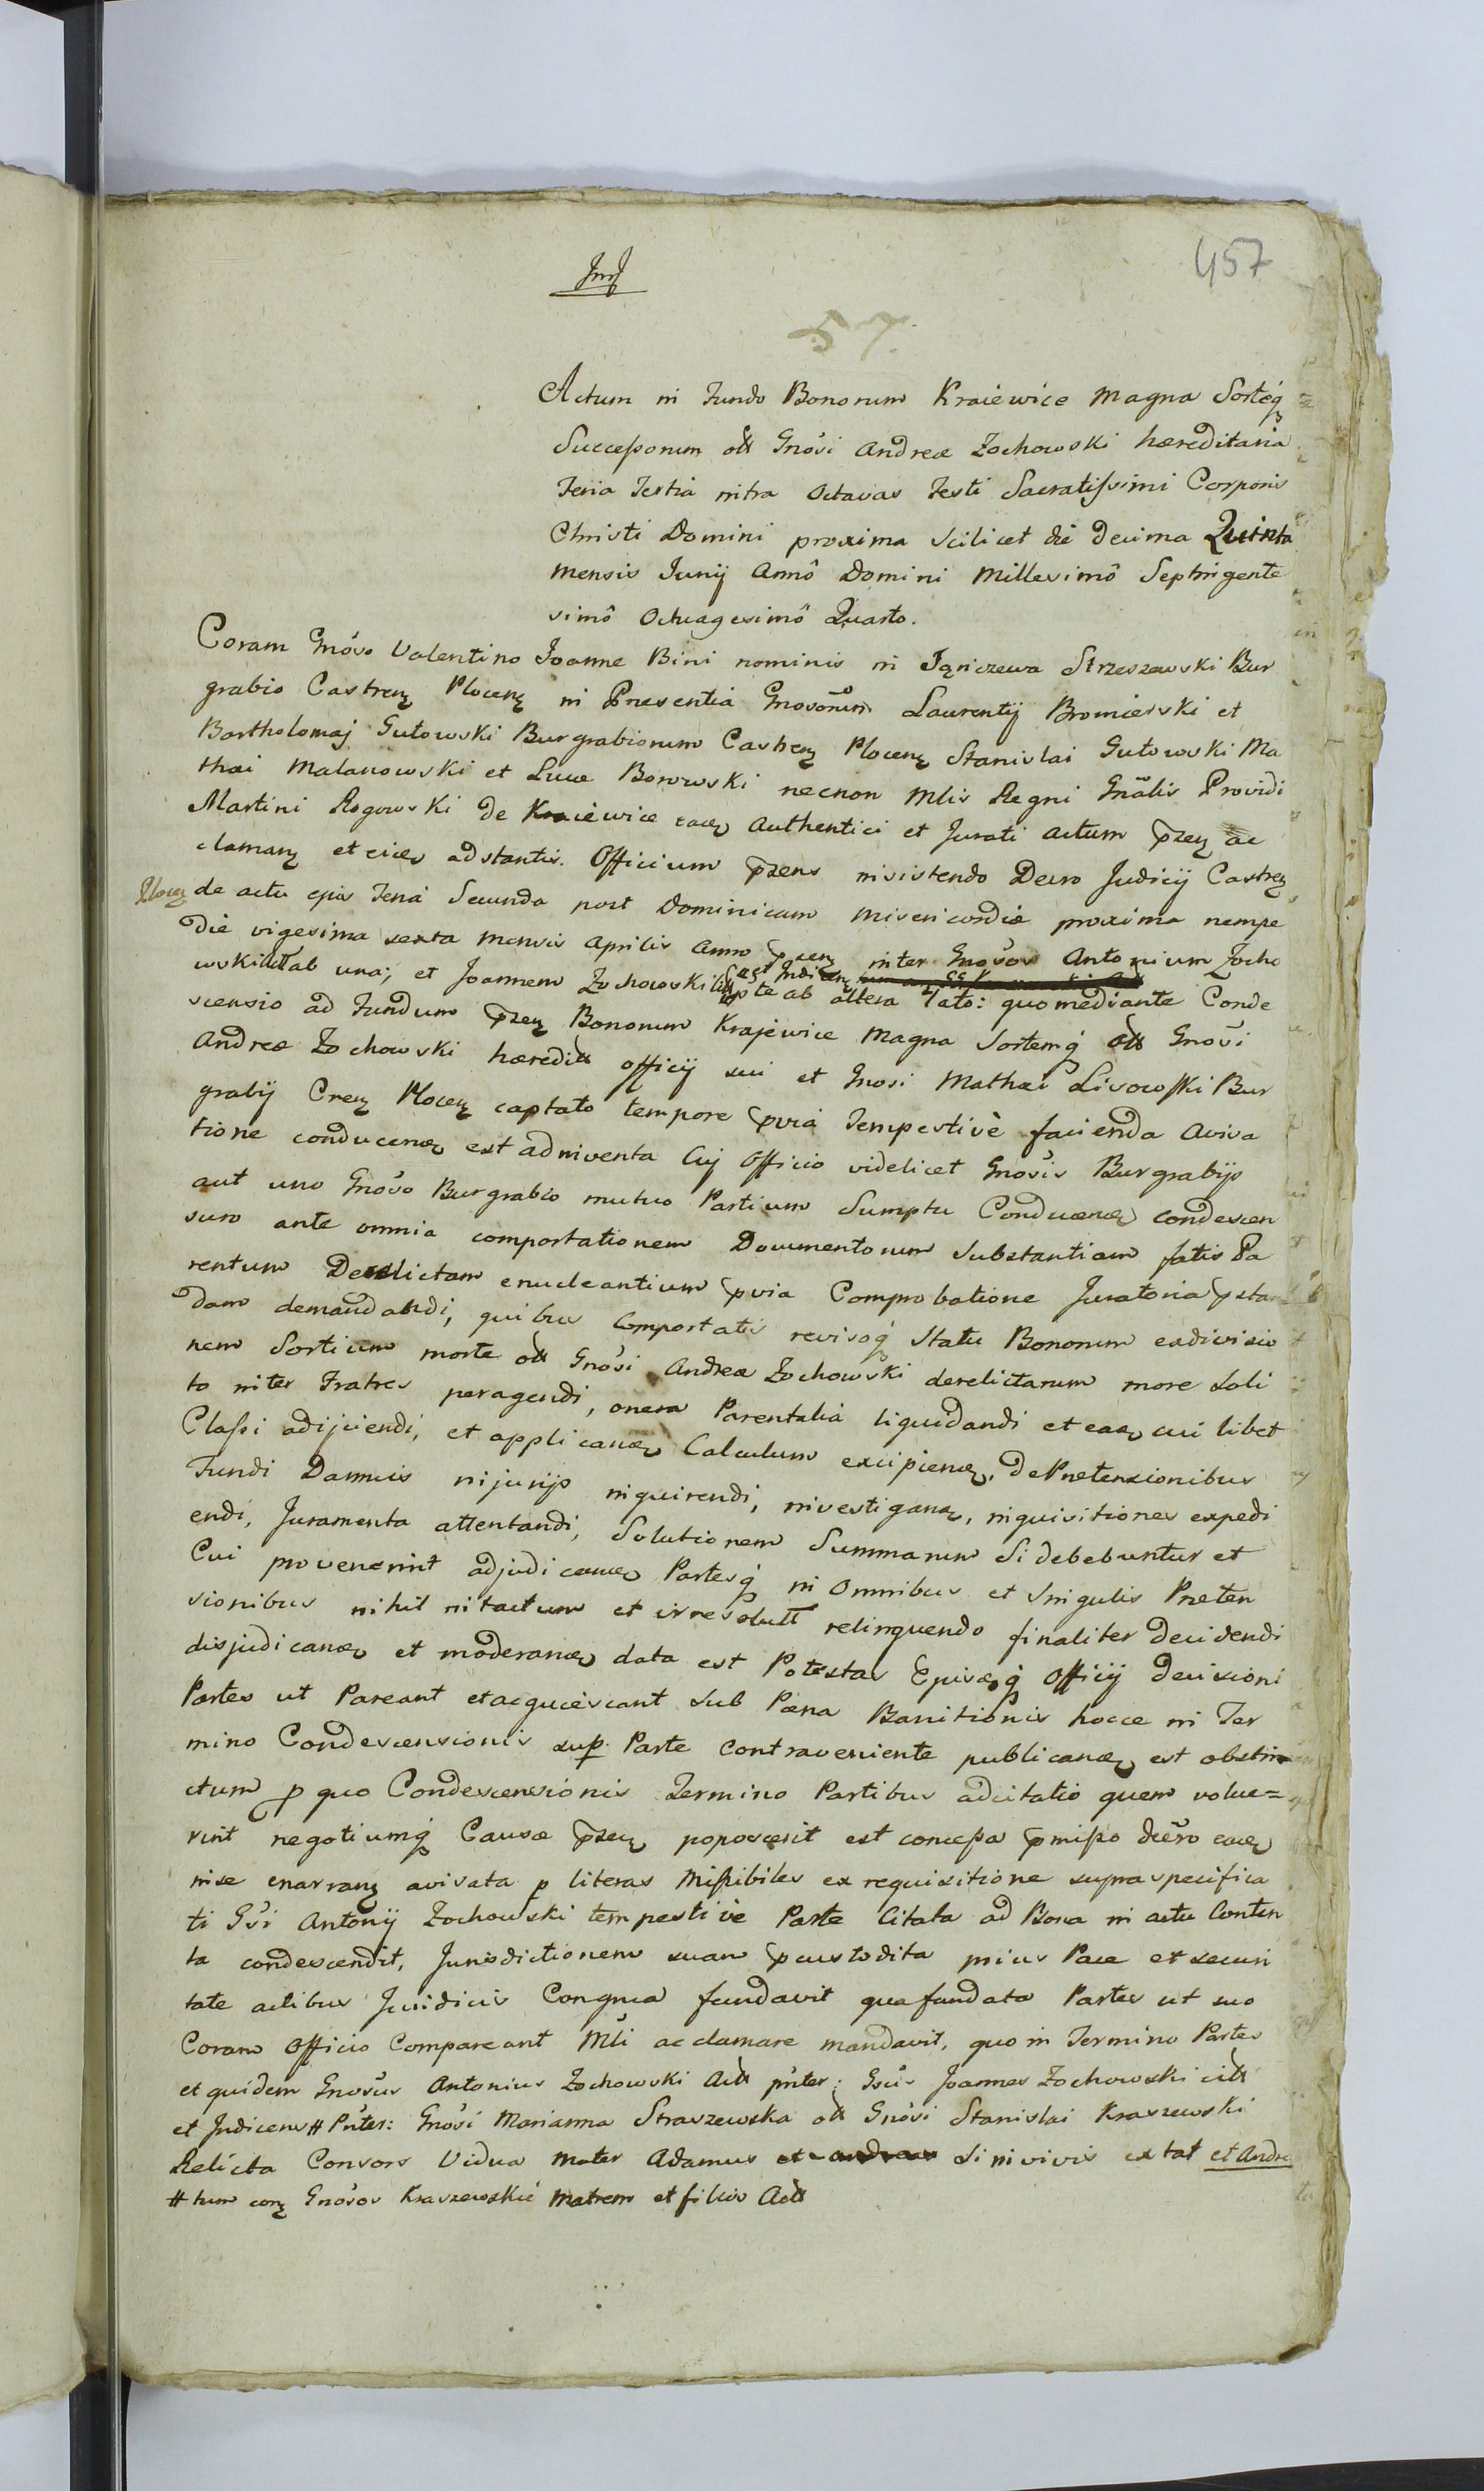 457
57
Actum in Fundo Bonorum Kraiewice Magna Sorteq
Successorum olt Gnosi Andreæ Zochowski hæreditaria
Feria Tertia intra Octavas Festi Sacratissimi Corporis
Christi Domini proxima scilicet die Decima Quinta
Mensis Junij Annô Domini Millesimô Septingente
simô Octuagesimô Quarto.
Coram Gnoso Valentino Joanne Bini nominis in Strzeszewski Bur
grabio Castren Plocen in Præsentia Gnosorum Laurentij Bromierski et
Bartholomaj Gutowski Burgrabiorum Castren Plocen Stanislai Gutowski Ma
thæi Malanowski et Lucæ Borowski necnon Mlis Regni Gnâlis Providi
Martini Rogowski de Kraiewice eæq Authentici et Jurati actum præn ac
claman et eicq adstantis. Officium præns insistendo Decro Judicij Castren
Plocen de actu ejus Feria Secunda post Dominicam Misericordiæ proxima nempe
die vigesima sexta Mensis Aprilis Anno præsen inter Gnosos Antonium Zocho
wski Actt ab una; et Joannem Zochowski Citt et Indicen pte ab altera lato: quo mediante Conde
scensio ad Fundum præn Bonorum Krajewice Magna Sortemq olt Gnosi
Andreæ Zochowski hæreditt officij sui et Gnosi Mathæi Lisowski Bur
grabij Cren Plocen captato tempore prævia Tempestivè facienda Aviza
tione conducenæ est adinventa Cuj Officio videlicet Gnosis Burgrabijs
aut uno Gnoso Burgrabio mutuo Partium Sumptu Conducenæ condescen
suro ante omnia comportationem Documentorum Substantiam fatis Pa
rentum Derelictam enucleantium prævia Comprobatione Juratoria præstan
dam demandandi, quibus Comportatis revisoq Statu Bonorum exdivisio
nem Sortium morte olt Gnosi Andreæ Zochowski derelictarum more soli
to inter Fratres peragendi, onera Parentalia liquidandi et eaq cui libet
Classi adijciendi, et applicanæ Calculum excipienæ, de Prætensionibus
Fundi Damnis injurijs inquirendi, investiganæ, inquisitiones expedi
endi, Juramenta attentandi, Solutionem Summarum Si debebuntur et
Cui provenerint adjudicanæ Partesq in Omnibus et Singulis Præten
sionibus nihil intactum et irresolutt relinquendo finaliter decidendi
disjudicanæ et moderanæ data est Potestas Ejusq Officij Decisioni
Partes ut Pareant et acquiescant sub Pœna Banitionis hocce in Ter
mino Condescensionis sup Parte contraveniente publicanæ est obstri
ctum p quo Condescensionis Termino Partibus adcitatio quem volue=
rint negotiumq Causæ præn poposcerit est concessa præmisso decro eæq
inse enarran avisata p literas Missibiles ex requisitione supra specifica
ti Gsi Antonij Zochowski tempestivè Parte Citata ad Bona in actu Conten
ta condescendit, Jurisdictionem suam præcustodita prius Pace et securi
tate actibus Juridicis Congrua fundavit qua fundata Partes ut suo
Coram Officio Compareant Mli acclamare mandavit, quo in Termino Partes
et quidem Gnosus Antonius Zochowski Actt pnter: Gsus Joannes Zochowski citt
et Indicens # Pnter: Gnosi Marianna Straszewska olt Gnosi Stanislai Kraszewski
Relicta Consors Vidua Mater Adamus et Andreas Si in vivis extat et Andre
# tum con Gnosos Kraszewskie Matrem et filios Actt